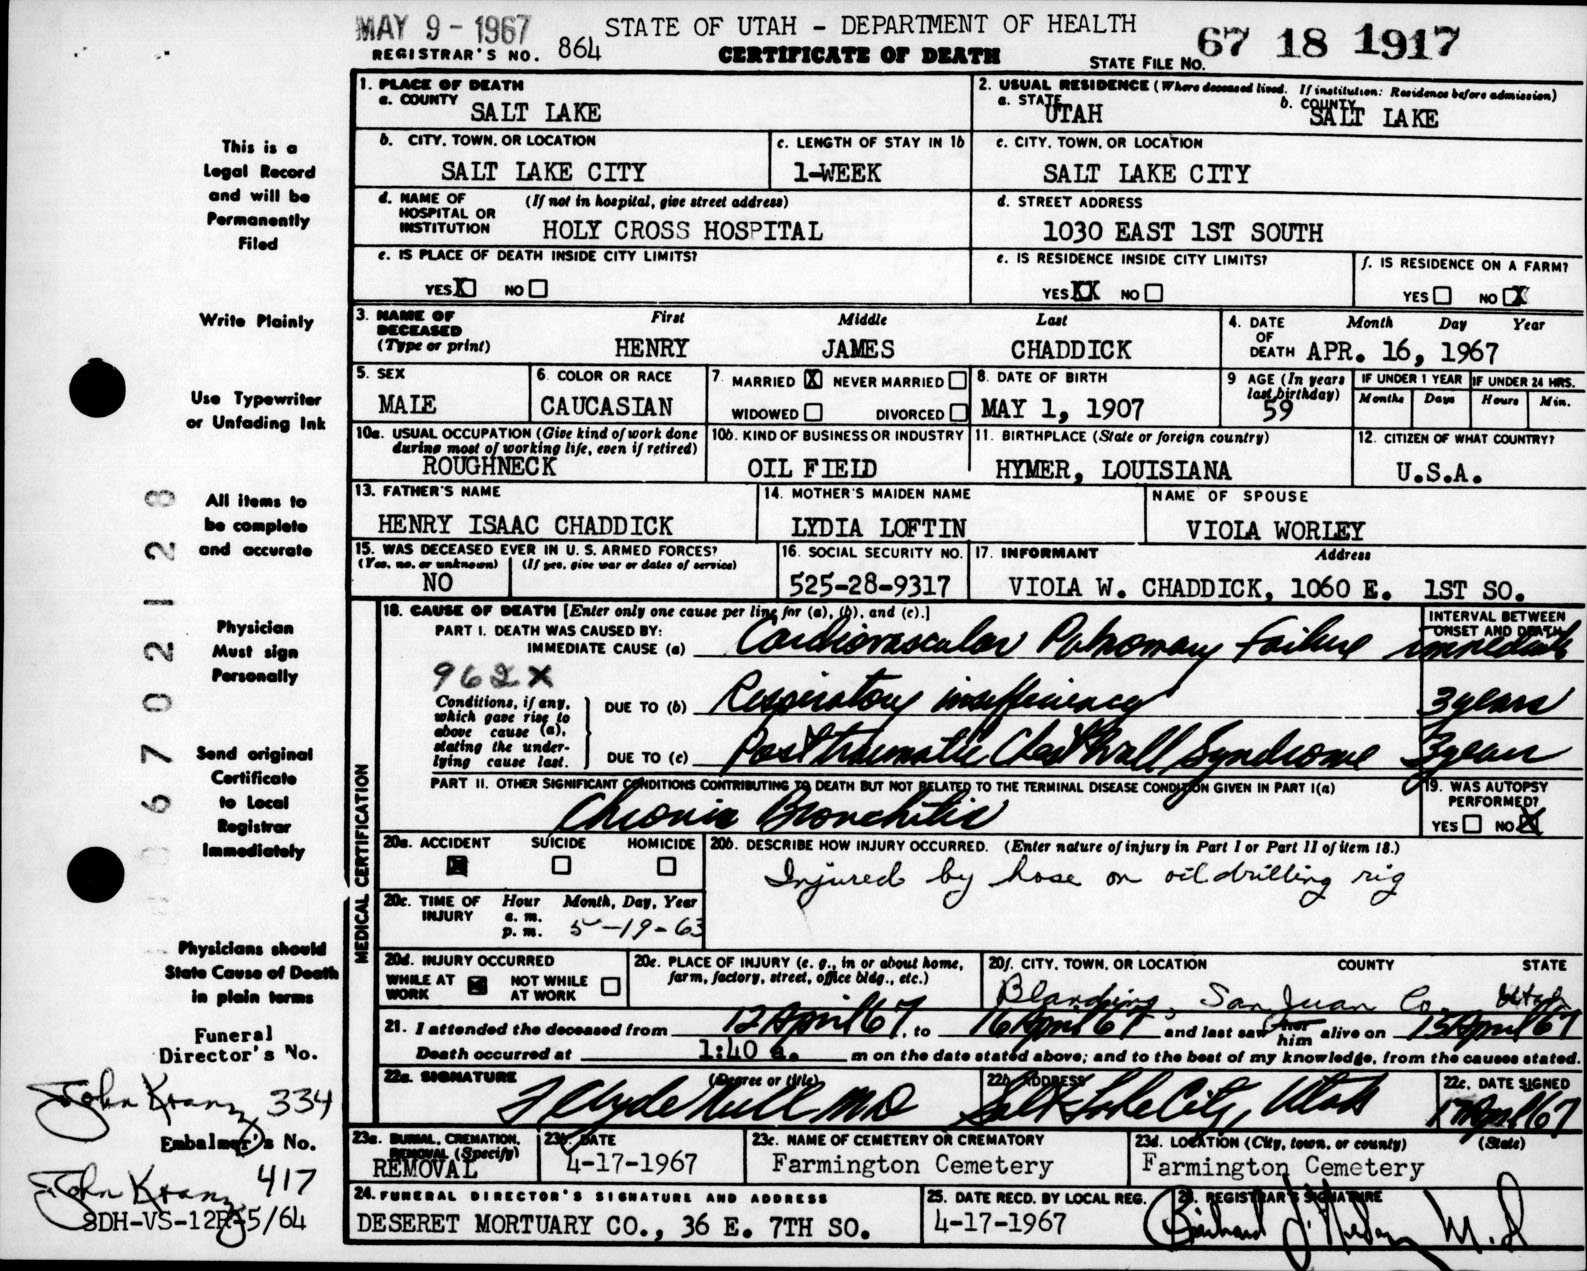 MAY 9 - 1967
STATE OF UTAH - DEPARTMENT OF HEALTH
REGISTRAR'S NO. 864
CERTIFICATE OF DEATH
STATE FILE NO. 67 18 1917
1. PLACE OF DEATH
a. COUNTY SALT LAKE
2. USUAL RESIDENCE (Where deceased lived. If institution: Residence before admission)
a. STATE UTAH b. COUNTY SALT LAKE
b. CITY, TOWN, OR LOCATION
SALT LAKE CITY
c. LENGTH OF STAY IN 1b
1-WEEK
c. CITY, TOWN, OR LOCATION
SALT LAKE CITY
d. NAME OF HOSPITAL OR INSTITUTION (If not in hospital, give street address)
HOLY CROSS HOSPITAL
d. STREET ADDRESS
1030 EAST 1ST SOUTH
e. IS PLACE OF DEATH INSIDE CITY LIMITS?
YES X NO
e. IS RESIDENCE INSIDE CITY LIMITS?
YES XX NO
f. IS RESIDENCE ON A FARM?
YES NO X
3. NAME OF DECEASED (Type or print)
First Middle Last
HENRY JAMES CHADDICK
4. DATE OF DEATH Month Day Year
APR. 16, 1967
5. SEX
MALE
6. COLOR OR RACE
CAUCASIAN
7. MARRIED X NEVER MARRIED
WIDOWED DIVORCED
8. DATE OF BIRTH
MAY 1, 1907
9 AGE (In years last birthday)
59
IF UNDER 1 YEAR IF UNDER 24 HRS.
Months Days Hours Min.
10a. USUAL OCCUPATION (Give kind of work done during most of working life, even if retired)
ROUGHNECK
10b. KIND OF BUSINESS OR INDUSTRY
OIL FIELD
11. BIRTHPLACE (State or foreign country)
HYMER, LOUISIANA
12. CITIZEN OF WHAT COUNTRY?
U.S.A.
13. FATHER'S NAME
HENRY ISAAC CHADDICK
14. MOTHER'S MAIDEN NAME
LYDIA LOFTIN
NAME OF SPOUSE
VIOLA WORLEY
15. WAS DECEASED EVER IN U. S. ARMED FORCES?
(Yes, no, or unknown) (If yes, give war or dates of service)
NO
16. SOCIAL SECURITY NO.
525-28-9317
17. INFORMANT Address
VIOLA W. CHADDICK, 1060 E. 1ST SO.
MEDICAL CERTIFICATION
18. CAUSE OF DEATH [Enter only one cause per line for (a), (b), and (c).]
INTERVAL BETWEEN ONSET AND DEATH
PART I. DEATH WAS CAUSED BY:
IMMEDIATE CAUSE (a) Cardiovascular Pulmonary Failure immediate
962X
Conditions, if any, which gave rise to above cause (a), stating the underlying cause last.
DUE TO (b) Respiratory insufficiency 3 years
DUE TO (c) Post traumatic Chest Wall Syndrome 3 years
PART II. OTHER SIGNIFICANT CONDITIONS CONTRIBUTING TO DEATH BUT NOT RELATED TO THE TERMINAL DISEASE CONDITION GIVEN IN PART I(a)
Chronic Bronchitis
19. WAS AUTOPSY PERFORMED?
YES NO X
20a. ACCIDENT SUICIDE HOMICIDE
20b. DESCRIBE HOW INJURY OCCURRED. (Enter nature of injury in Part I or Part II of item 18.)
Injured by hose on oil drilling rig
20c. TIME OF INJURY Hour Month, Day, Year
a. m.
p. m. 5-19-63
20d. INJURY OCCURRED
WHILE AT WORK NOT WHILE AT WORK
20e. PLACE OF INJURY (e. g., in or about home, farm, factory, street, office bldg., etc.)
20f. CITY, TOWN, OR LOCATION COUNTY STATE
Blanding, San Juan Co. Utah
21. I attended the deceased from 12 April 67, to 16 April 67 and last saw her him alive on 15 April 67
Death occurred at 1:40 a. m on the date stated above; and to the best of my knowledge, from the causes stated.
22a. SIGNATURE (Degree or title)
22b. ADDRESS
22c. DATE SIGNED
M.D. Salt Lake City, Utah 17 April 67
23a. BURIAL, CREMATION, REMOVAL (Specify)
REMOVAL
23b. DATE
4-17-1967
23c. NAME OF CEMETERY OR CREMATORY
Farmington Cemetery
23d. LOCATION (City, town, or county) (State)
Farmington Cemetery
24. FUNERAL DIRECTOR'S SIGNATURE AND ADDRESS
DESERET MORTUARY CO., 36 E. 7TH SO.
25. DATE RECD. BY LOCAL REG.
4-17-1967
26. REGISTRAR'S SIGNATURE
M.D
This is a
Legal Record
and will be
Permanently
Filed
Write Plainly
Use Typewriter
or Unfading Ink
All items to
be complete
and accurate
Physician
Must sign
Personally
Send original
Certificate
to Local
Registrar
Immediately
Physicians should
State Cause of Death
in plain terms
Funeral
Director's No.
John Kranz 334
Embalmer's No.
John Kranz 417
SDH-VS-12R-5/64
6702128